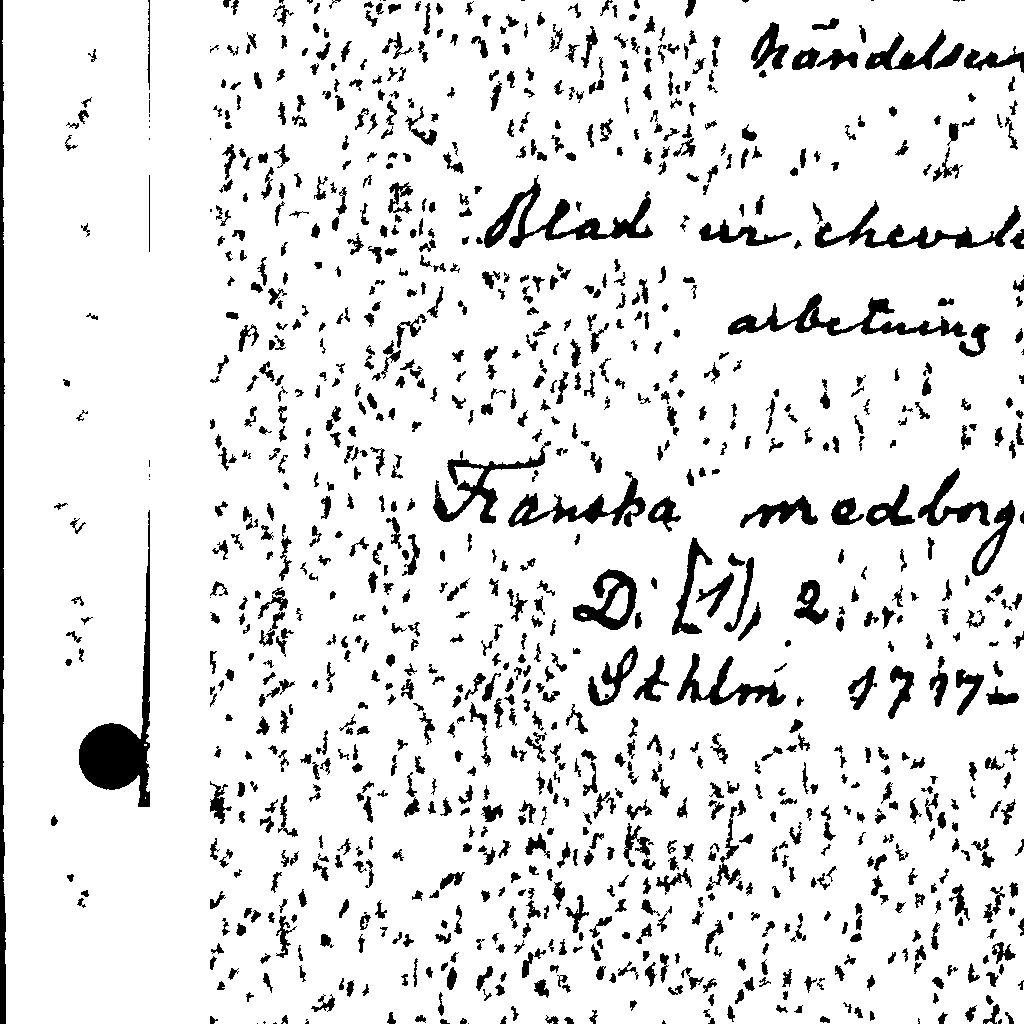 händelser
Blad ur chevale
arbetning
Franska medborga
D. [1], 2.
Sthlm. 1717-